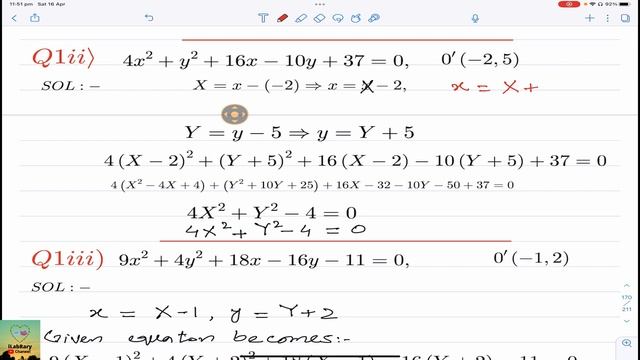 11:51 pm Sat 16 Apr
Q1ii) 4x² + y² + 16x − 10y + 37 = 0, 0′(−2, 5)
SOL : − X = x − (−2) ⇒ x = X − 2, x = X +
Y = y − 5 ⇒ y = Y + 5
4 (X − 2)² + (Y + 5)² + 16 (X − 2) − 10 (Y + 5) + 37 = 0
4 (X² − 4X + 4) + (Y² + 10Y + 25) + 16X − 32 − 10Y − 50 + 37 = 0
4X² + Y² − 4 = 0
4X² + Y² − 4 = 0
Q1iii) 9x² + 4y² + 18x − 16y − 11 = 0, 0′(−1, 2)
SOL : −
x = X − 1, y = Y + 2
Given equation becomes:-
170
211
iLabRary